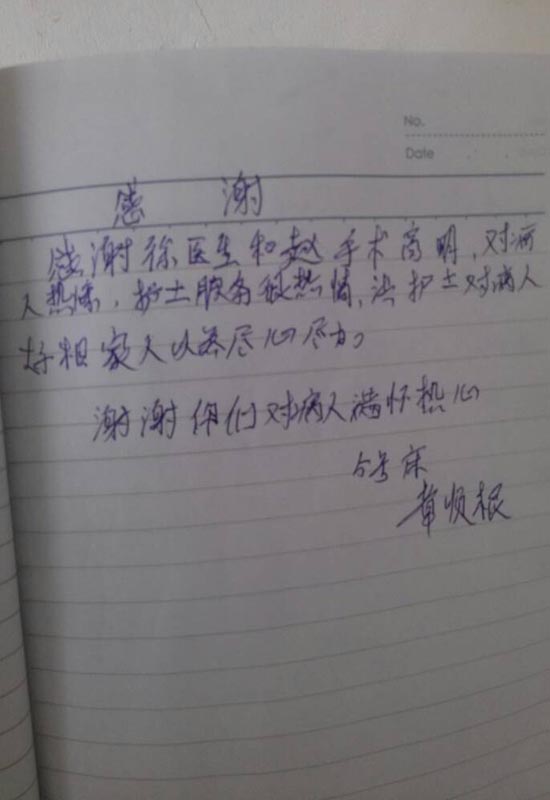 No.
Date
感 谢
感谢徐医生和赵手术高明，对病
人热情，护士服务很热情，护士对病人
好相家人以尽心尽力。
谢谢你们对病人满怀热心
5号床
章顺根